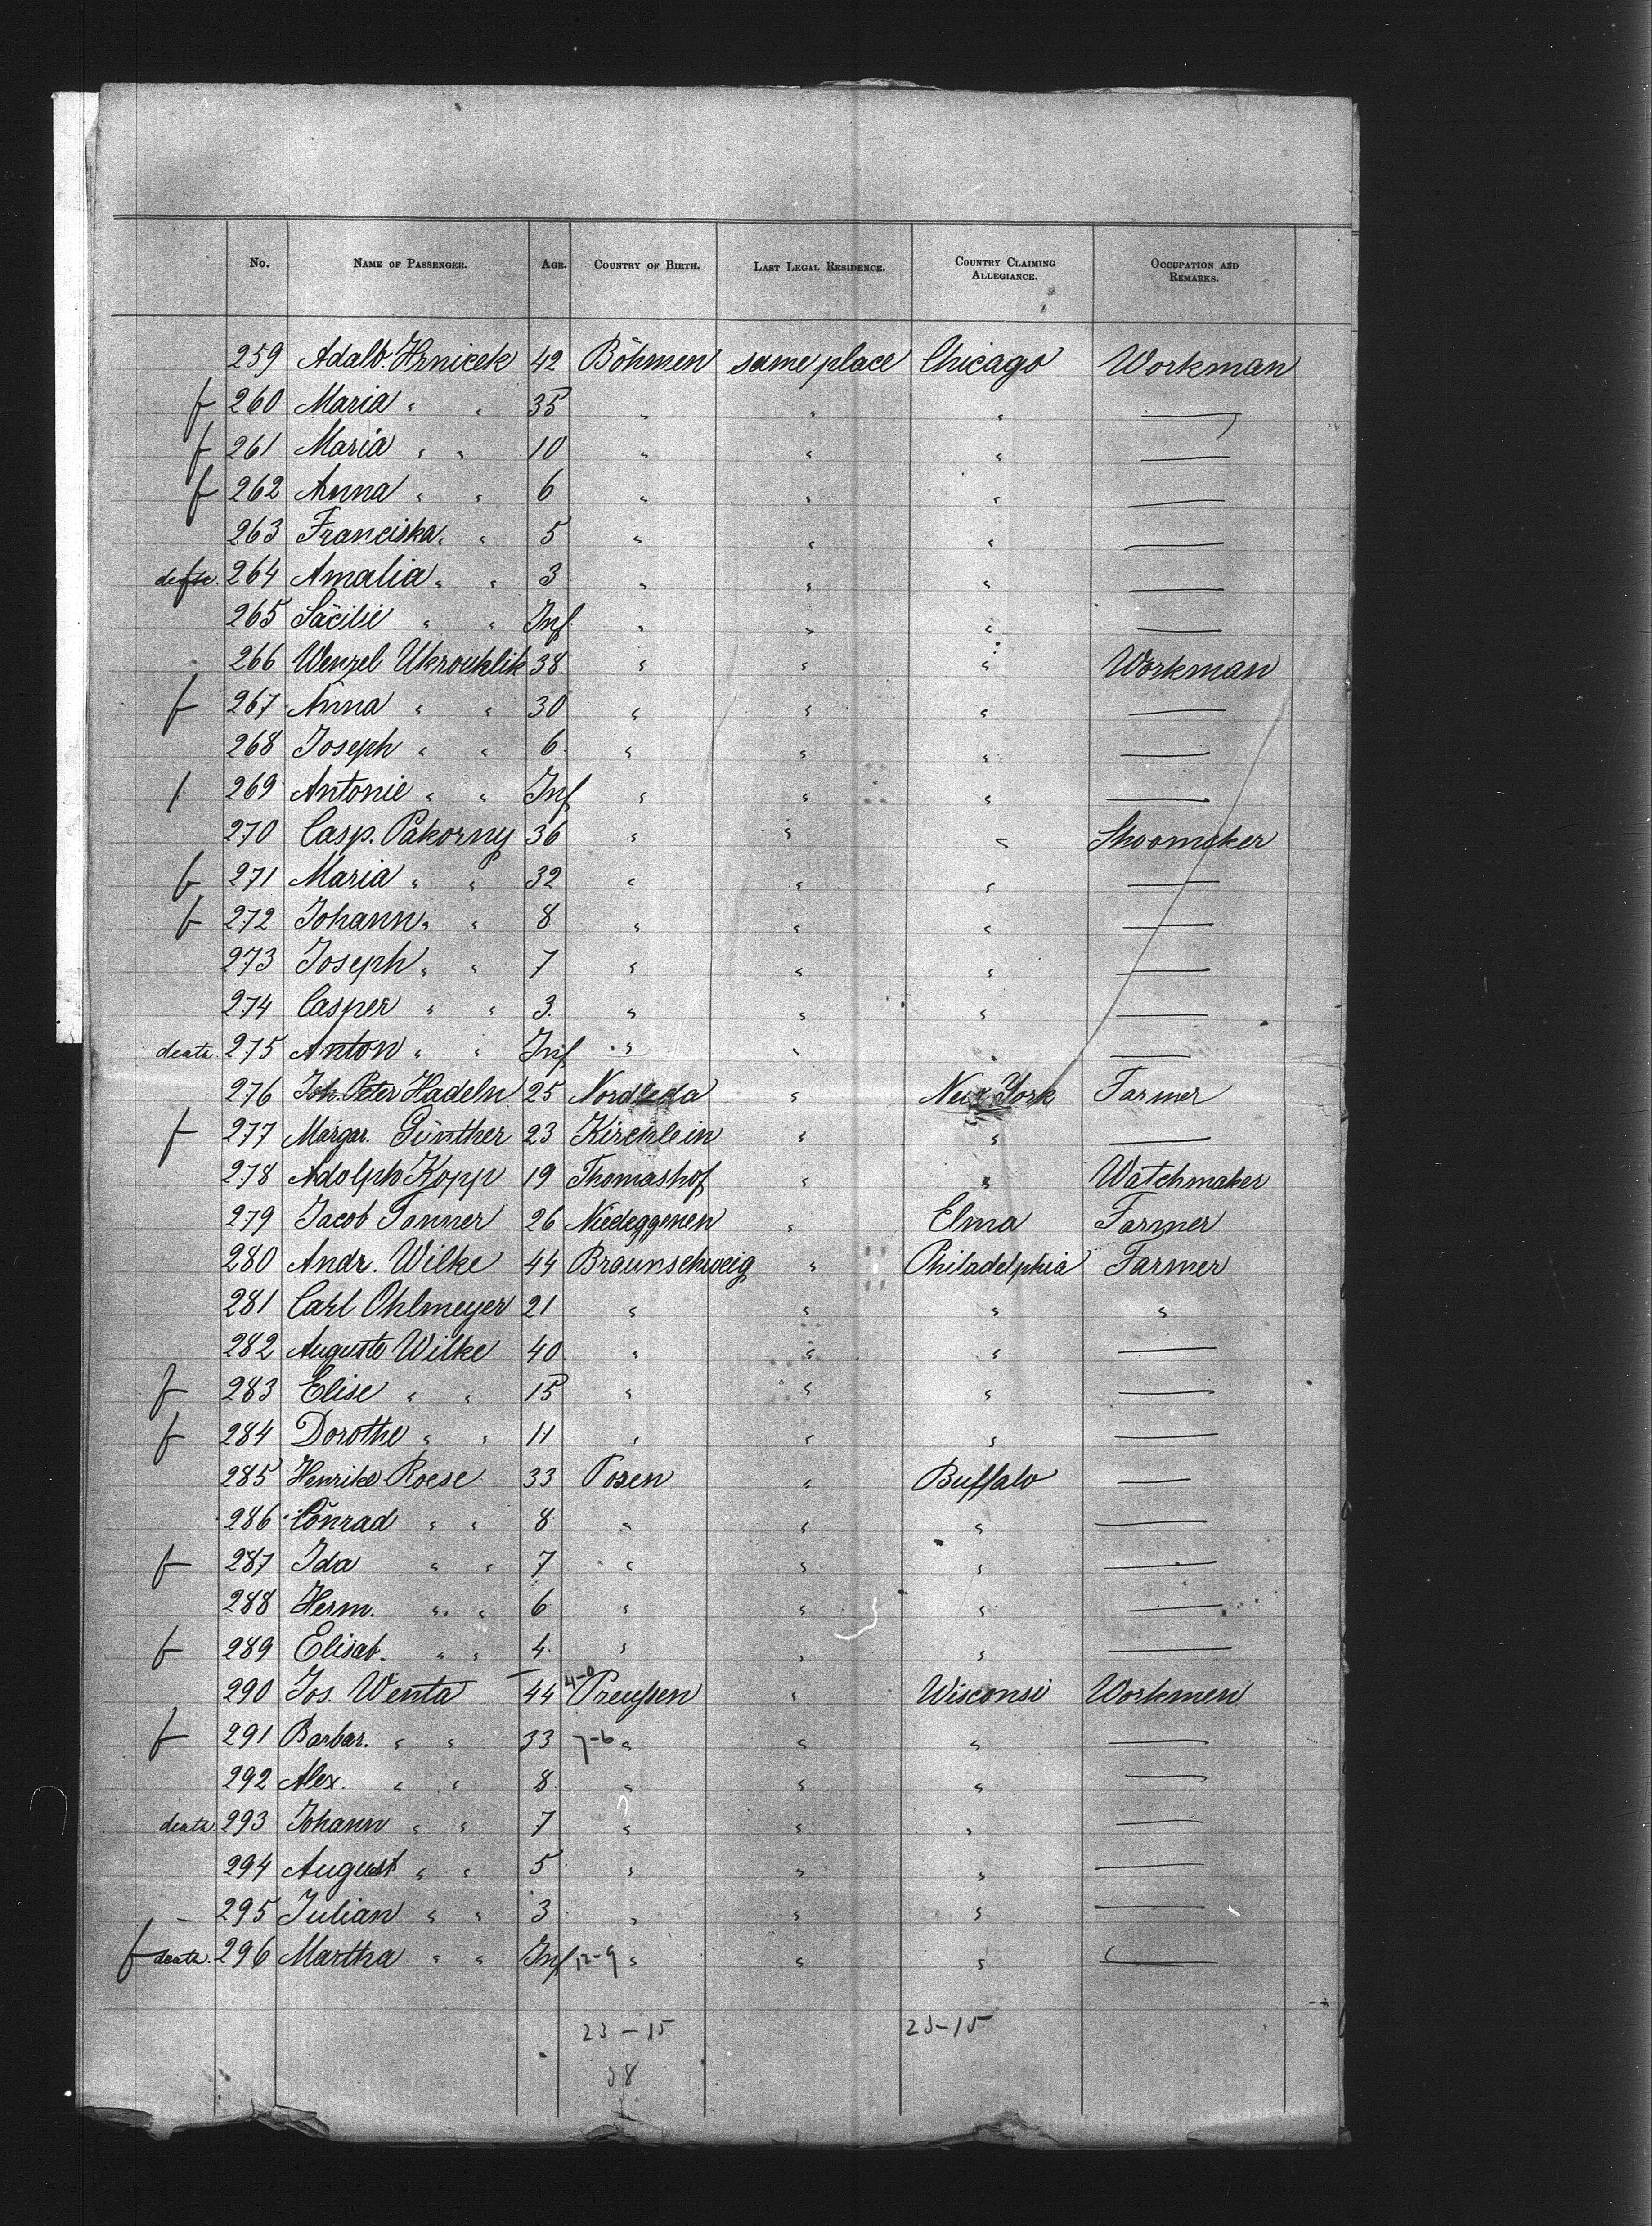 No. NAME OF PASSENGER. AGE. COUNTRY OF BIRTH. LAST LEGAL RESIDENCE. COUNTRY CLAIMING ALLEGIANCE. OCCUPATION AND REMARKS.
259 Adalb. Hrnicek 42 Böhmen same place Chicago Workman
f 260 Maria " " 35 " " " —
f 261 Maria " " 10 " " " —
f 262 Anna " " 6 " " " —
263 Franciska " " 5 " " " —
264 Amalia " " 3 " " " —
265 Säcilie " " Inf. " " " —
266 Wenzel Ukrouhlik 38 " " " Workman
f 267 Anna " " 30 " " " —
268 Joseph " " 6 " " " —
269 Antonie " " Inf " " " —
270 Casp. Pakorny 36 " " " Shoomaker
f 271 Maria " " 32 " " " —
f 272 Johann " " 8 " " " —
273 Joseph " " 7 " " " —
274 Casper " " 3. " " " —
death. 275 Anton " " Inf " " " —
276 Joh. Peter Hadeln 25 Nordleda " New York Farmer
f 277 Margar. Günther 23 Kirchlein " " —
278 Adolph Kopp 19 Thomashof " " Watchmaker
279 Jacob Tanner 26 Niedeggenen " Elma Farmer
280 Andr. Wilke 44 Braunschweig " Philadelphia Farmer
281 Carl Ohlmeyer 21 " " " "
282 Auguste Wilke 40 " " " —
f 283 Elise " " 15 " " " —
f 284 Dorothe " " 11 " " " —
285 Henrike Roese 33 Posen " Buffalo —
286 Conrad " " 8 " " " —
f 287 Ida " " 7 " " " —
288 Herm. " " 6 " " " —
f 289 Elisab. " " 4 " " " —
290 Jos. Wenta 44 4-0 Preußen " Wisconsi Workmen
f 291 Barbar. " " 33 7-6 " " " —
292 Alex. " " 8 " " " —
death. 293 Johann " " 7 " " " —
294 August " " 5 " " " —
295 Julian " " 3 " " " —
f death. 296 Martha " " Inf 12-9 " " " —
23-15 23-15
38